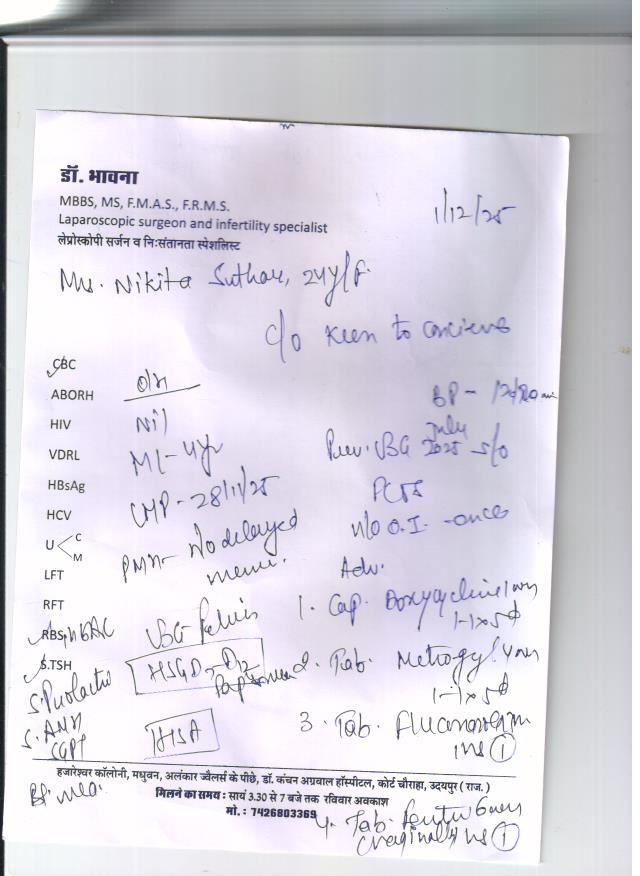 डॉ. भावना
MBBS, MS, F.M.A.S., F.R.M.S.
Laparoscopic surgeon and infertility specialist
लेप्रोस्कोपी सर्जन व निःसंतानता स्पेशलिस्ट
1/12/25
Nikita Suthar, 24y/F
c/o Keen to conceive
CBC
ABORH
HIV
VDRL
HBsAg
HCV
U C
M
LFT
RFT
RBS, HbA1C
S.TSH
S. Prolactin
S. AMH
SGPT
O/H
Nil
ML - 4yr
LMP - 28/11/25
PMH - No delayed
menses.
USG Pelvis
HSG D7-D12
Pap smear
HSA
BP - 120/80
Prev. USG July 2025 s/o
PCOS
h/o O.I. - once
Adv.
1. Cap. Doxycycline
1-1x5d
2. Tab. Metrogyl
1-1x5d
3. Tab. Fluconazole
1
हजारेश्वर कॉलोनी, मधुवन, अलंकार ज्वैलर्स के पीछे, डॉ. कंचन अग्रवाल हॉस्पीटल, कोर्ट चौराहा, उदयपुर ( राज. )
मिलने का समय : सायं 3.30 से 7 बजे तक रविवार अवकाश
मो. : 7426803369
4. Tab.
1